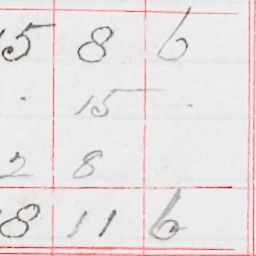 15 8 6
. 15 .
2 8
18 11 6